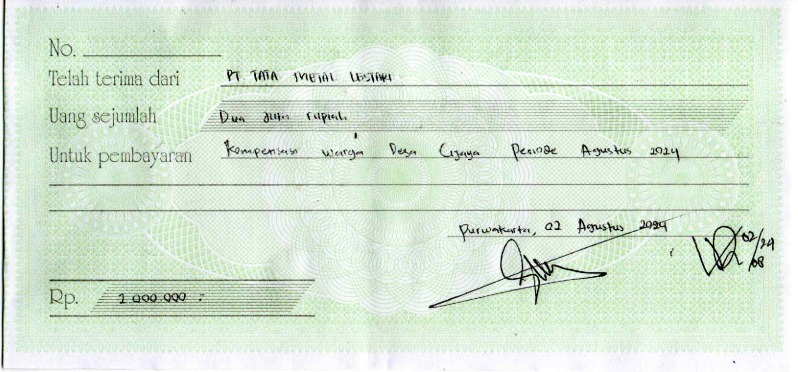 No.
Telah terima dari PT TATA METAL LESTARI
Uang sejumlah Dua juta rupiah.
Untuk pembayaran Kompensasi warga Desa Cijaya Periode Agustus 2024
Purwakarta, 02 Agustus 2024
02/24
/08
Rp. 2.000.000 :